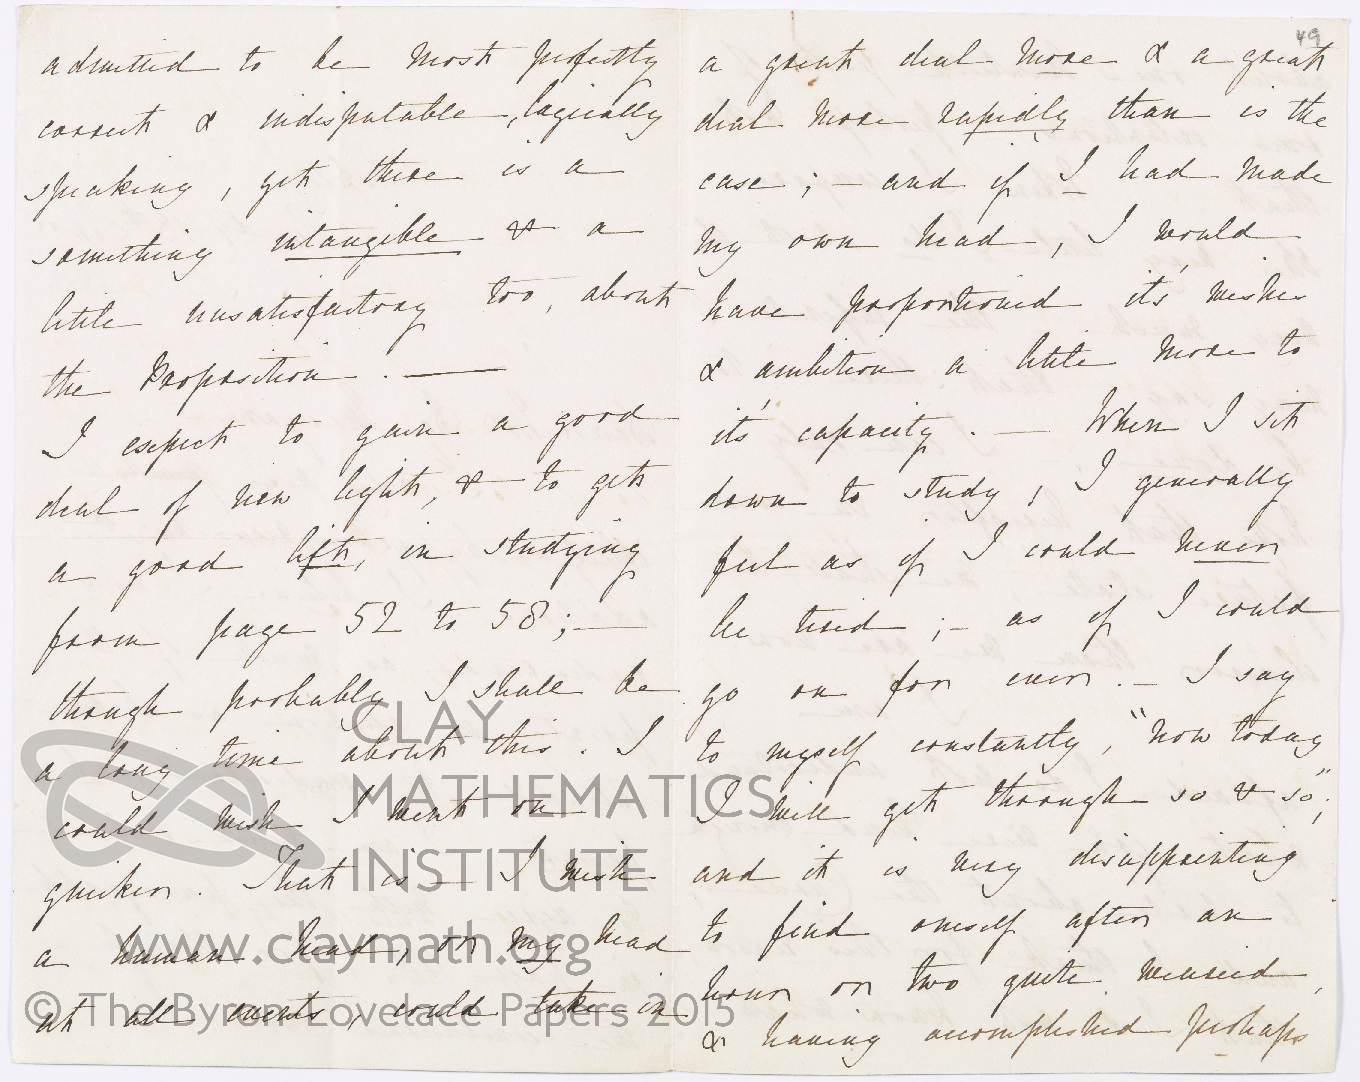 admitted to be most perfectly
correct & indisputable, logically
speaking, yet there is a
something intangible & a
little unsatisfactory too, about
the Proposition. —
I expect to gain a good
deal of new light, & to get
a good lift, in studying
from page 52 to 58; —
though probably I shall be
a long time about this. I
could wish I went on
quicker. That is — I wish
a human head, or my head
at all events, could take in
49
a great deal more & a great
deal more rapidly than is the
case; — and if I had made
my own head, I would
have proportioned it's wishes
& ambition a little more to
it's capacity. — When I sit
down to study, I generally
feel as if I could never
be tired; — as if I could
go on for ever. — I say
to myself constantly, "now today
I will get through so & so";
and it is very disappointing
to find oneself after an
hour or two quite wearied,
& having accomplished perhaps
CLAY
MATHEMATICS
INSTITUTE
www.claymath.org
© The Byron-Lovelace Papers 2015